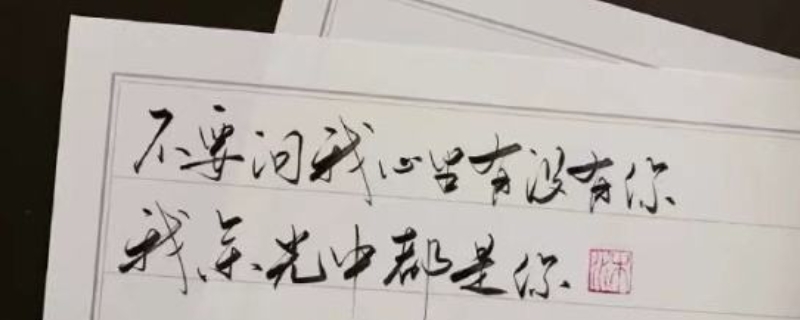 不要问我心里有没有你
我余光中都是你